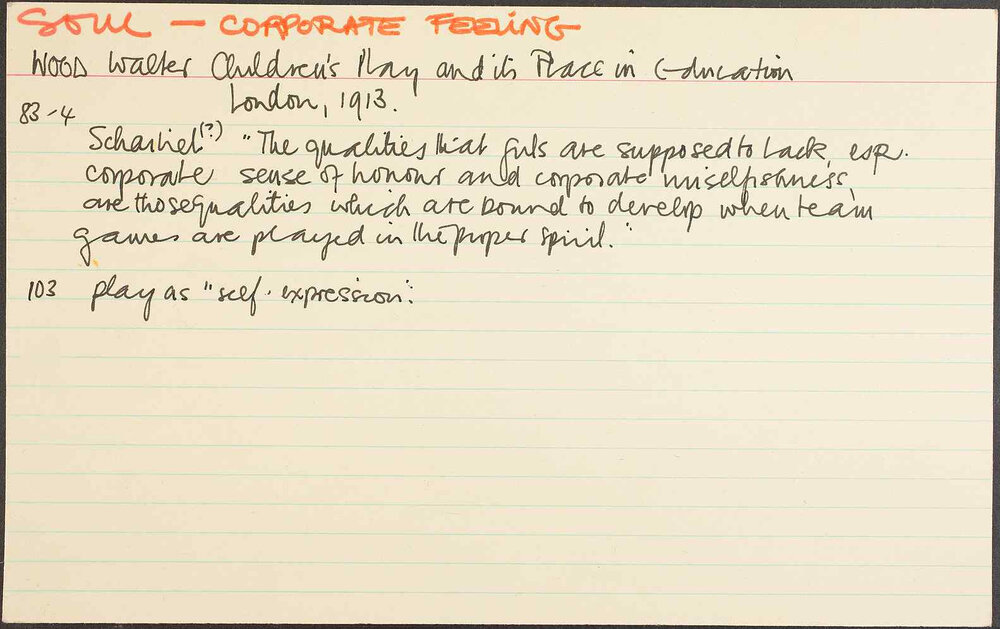 SOUL — CORPORATE FEELING
WOOD Walter Children's Play and its Place in Education
London, 1913.
83-4
(?) "The qualities that girls are supposed to lack, esp.
corporate sense of honour and corporate unselfishness,
are those qualities which are bound to develop when team
games are played in the proper spirit."
103 play as "self-expression".